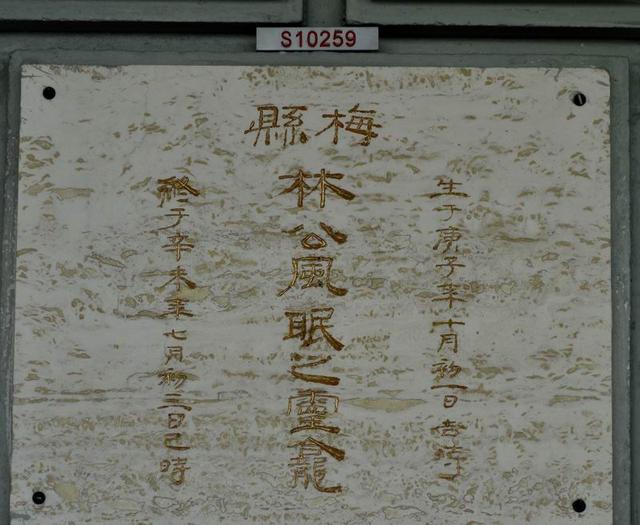 S10259
梅縣
生于庚子年十月初一日吉時
林公風眠之靈龕
終于辛未年七月初三日巳時